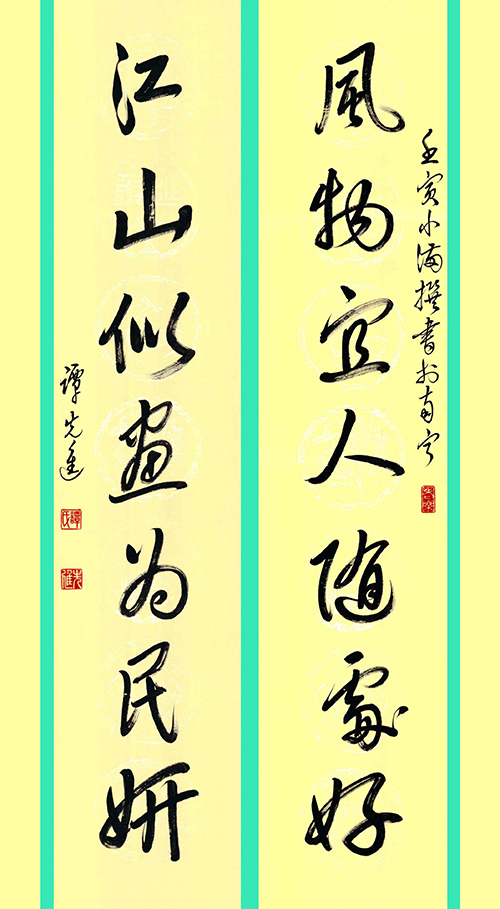 壬寅小满撰書於南宁
風物宜人随處好
江山似畫为民妍
譚先進